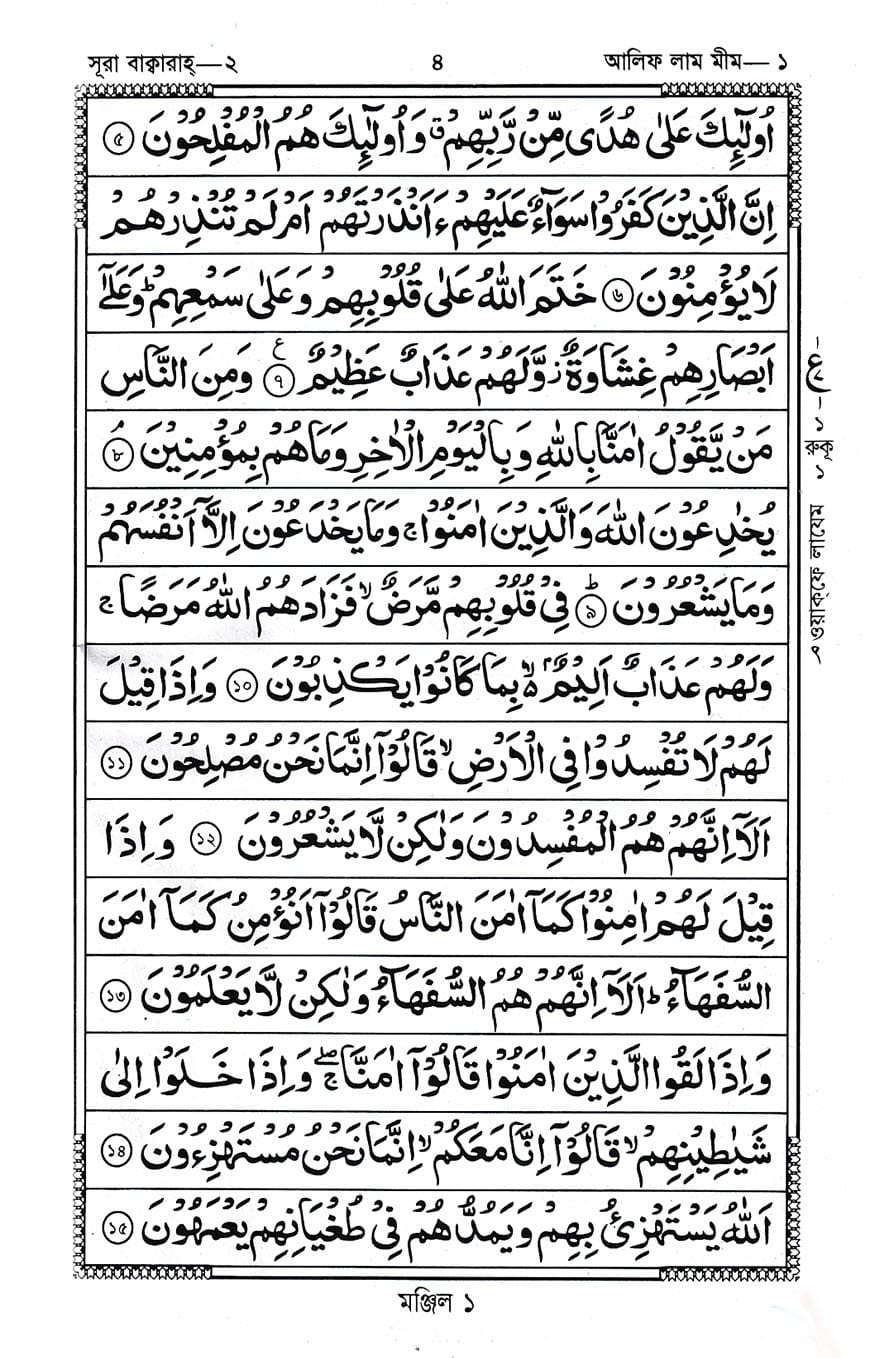 সূরা বাক্বারাহ্—২ ৪ আলিফ লাম মীম—১
اُولٰٓئِكَ عَلٰى هُدًى مِّنْ رَّبِّهِمْ ۙ وَاُولٰٓئِكَ هُمُ الْمُفْلِحُوْنَ ৫
اِنَّ الَّذِيْنَ كَفَرُوْا سَوَآءٌ عَلَيْهِمْ ءَاَنْذَرْتَهُمْ اَمْ لَمْ تُنْذِرْهُمْ
لَا يُؤْمِنُوْنَ ৬ خَتَمَ اللّٰهُ عَلٰى قُلُوْبِهِمْ وَعَلٰى سَمْعِهِمْ ؕ وَعَلٰٓى
اَبْصَارِهِمْ غِشَاوَةٌ ز وَّلَهُمْ عَذَابٌ عَظِيْمٌ ৭ ع وَمِنَ النَّاسِ
مَنْ يَّقُوْلُ اٰمَنَّا بِاللّٰهِ وَبِالْيَوْمِ الْاٰخِرِ وَمَا هُمْ بِمُؤْمِنِيْنَ ۘ ৮
يُخٰدِعُوْنَ اللّٰهَ وَالَّذِيْنَ اٰمَنُوْا ۚ وَمَا يَخْدَعُوْنَ اِلَّآ اَنْفُسَهُمْ
وَمَا يَشْعُرُوْنَ ؕ ৯ فِيْ قُلُوْبِهِمْ مَّرَضٌ ۙ فَزَادَهُمُ اللّٰهُ مَرَضًا ۚ
وَلَهُمْ عَذَابٌ اَلِيْمٌ ۙ بِمَا كَانُوْا يَكْذِبُوْنَ ১০ وَاِذَا قِيْلَ
لَهُمْ لَا تُفْسِدُوْا فِي الْاَرْضِ ۙ قَالُوْٓا اِنَّمَا نَحْنُ مُصْلِحُوْنَ ১১
اَلَآ اِنَّهُمْ هُمُ الْمُفْسِدُوْنَ وَلٰكِنْ لَّا يَشْعُرُوْنَ ১২ وَاِذَا
قِيْلَ لَهُمْ اٰمِنُوْا كَمَآ اٰمَنَ النَّاسُ قَالُوْٓا اَنُؤْمِنُ كَمَآ اٰمَنَ
السُّفَهَآءُ ؕ اَلَآ اِنَّهُمْ هُمُ السُّفَهَآءُ وَلٰكِنْ لَّا يَعْلَمُوْنَ ১৩
وَاِذَا لَقُوا الَّذِيْنَ اٰمَنُوْا قَالُوْٓا اٰمَنَّا ۖۚ وَاِذَا خَلَوْا اِلٰى
شَيٰطِيْنِهِمْ ۙ قَالُوْٓا اِنَّا مَعَكُمْ ۙ اِنَّمَا نَحْنُ مُسْتَهْزِءُوْنَ ১৪
اَللّٰهُ يَسْتَهْزِئُ بِهِمْ وَيَمُدُّهُمْ فِيْ طُغْيَانِهِمْ يَعْمَهُوْنَ ১৫
রুকূ ১
ওয়াক্ফে লাযেম
মঞ্জিল ১